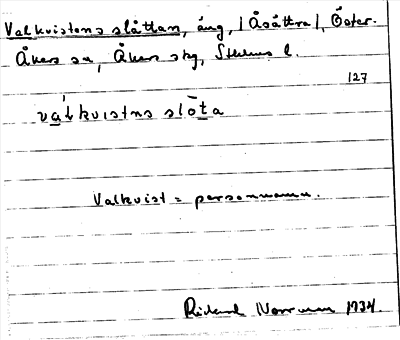 Valkvistens slåttan, äng, (Åsättra), Öster-
Åkers sn, Åkers skg, Sthlms l.
127
valkvistns slōta
Valkvist = personnamn.
Rickard Norrman 1934.